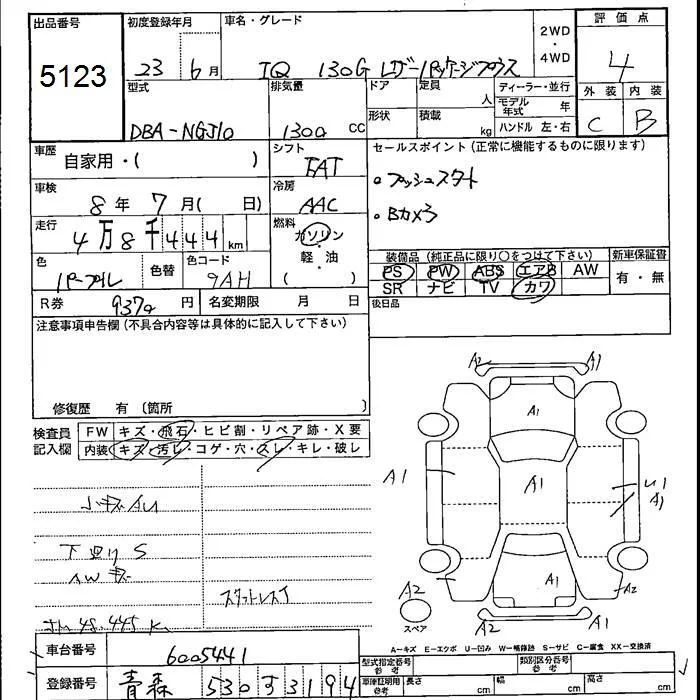 出品番号
5123
初度登録年月
23 6月
車名・グレード
IQ 130G レザーパッケージプラス
2WD
・
4WD
評価点
4
型式
DBA-NGJ10
排気量
1300 CC
ドア
形状
定員
人
積載
kg
ディーラー・並行
モデル年式 年
ハンドル 左・右
外装 内装
C B
車歴
自家用・( )
シフト
FAT
セールスポイント (正常に機能するものに限ります)
・プッシュスタート
・Bカメラ
車検
8年 7月( 日)
冷房
AAC
走行
4万8千444km
燃料
ガソリン
・
軽・油
( )
色
パープル
色替
色コード
9AH
装備品 (純正品に限り○をつけて下さい)
PS PW ABS エアB AW
SR ナビ TV カワ
新車保証書
有・無
R券 9370 円
名変期限 月 日
後日品
注意事項申告欄 (不具合内容等は具体的に記入して下さい)
修復歴 有 〔箇所 〕
検査員記入欄
FW キズ・飛石・ヒビ割・リペア跡・X要
内装 キズ・汚レ・コゲ・穴・スレ・キレ・破レ
小キズAU
下廻りS
AWキズ
スタットレス
48,445K
A2 A1
A1
A1
A1
U1
A1
A1
A2
A2
A2
スペア
A-キズ E-エクボ U-凹み W-補修跡 S-サビ C-腐食 XX-交換済
車台番号
6005441
登録番号
青森 530 す 3194
型式指定番号 参考
類別区分番号 参考
車庫証明用 参考
長さ cm
幅 cm
高さ cm